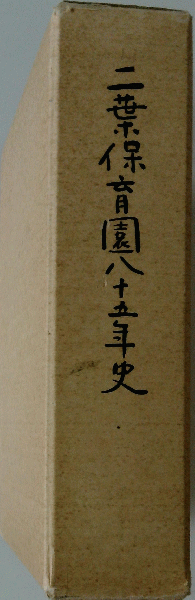 二葉保育園八十五年史